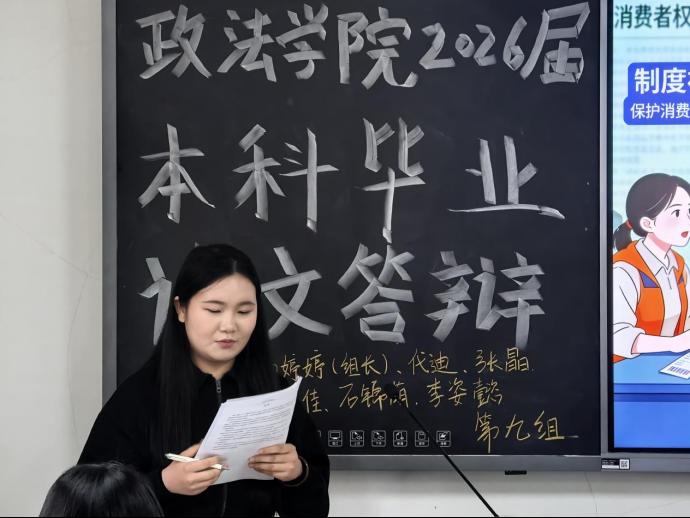 政法学院2026届
本科毕业
论文答辩
婷婷(组长)、代迪、张晶
佳、石锦萌、李姿懿
第九组
消费者权
制度
保护消费